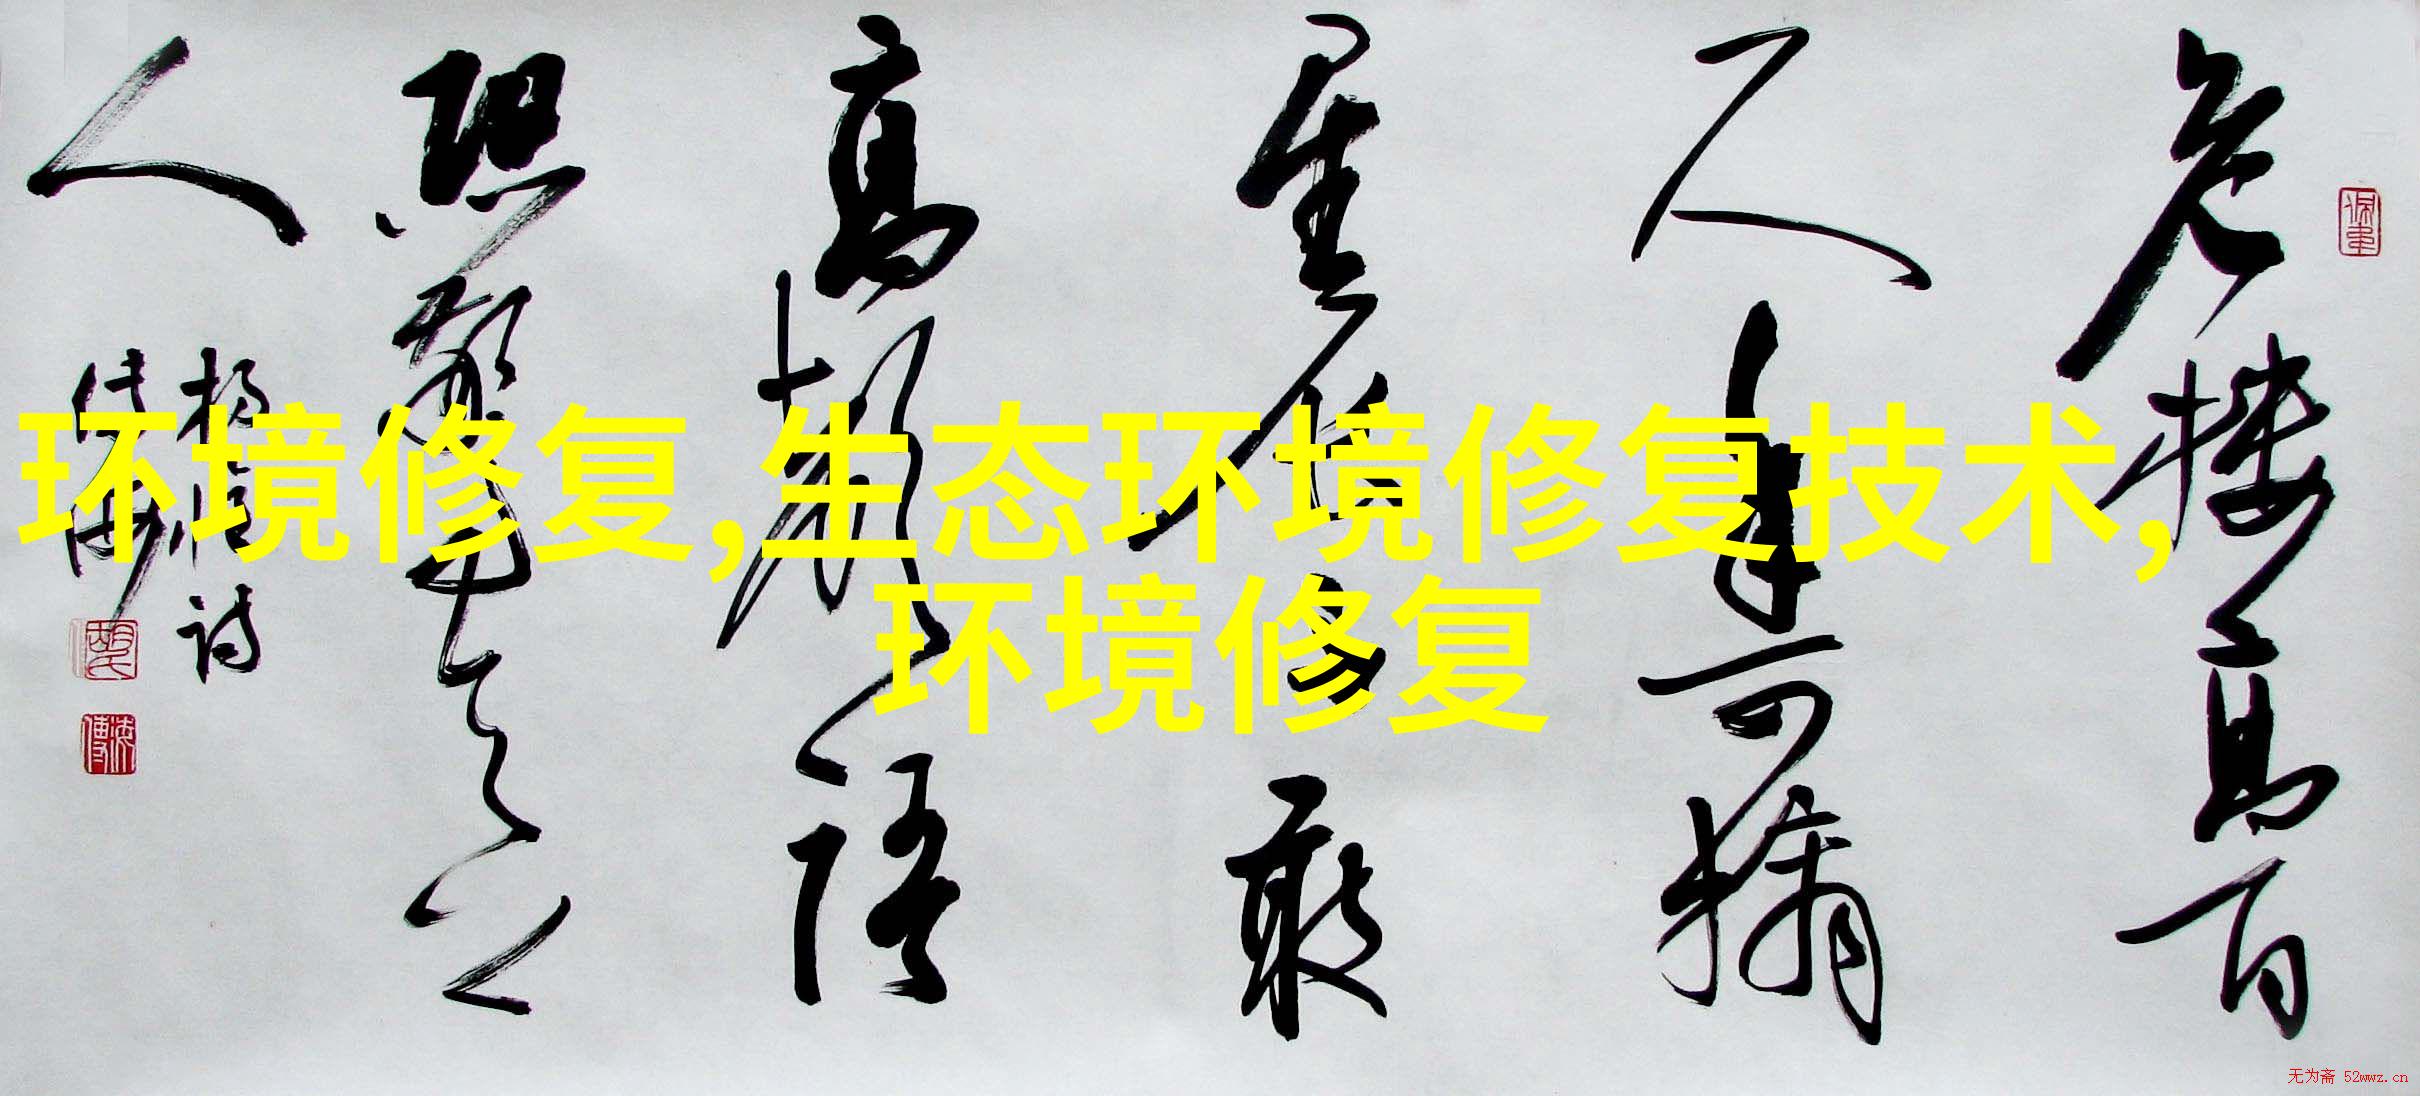 环境修复,生态环境修复技术,
环境修复
危楼高百
尺手可摘
星辰不敢
高声语
恐惊天上
人
杨亿诗
传海
无为斋 52wwz.cn